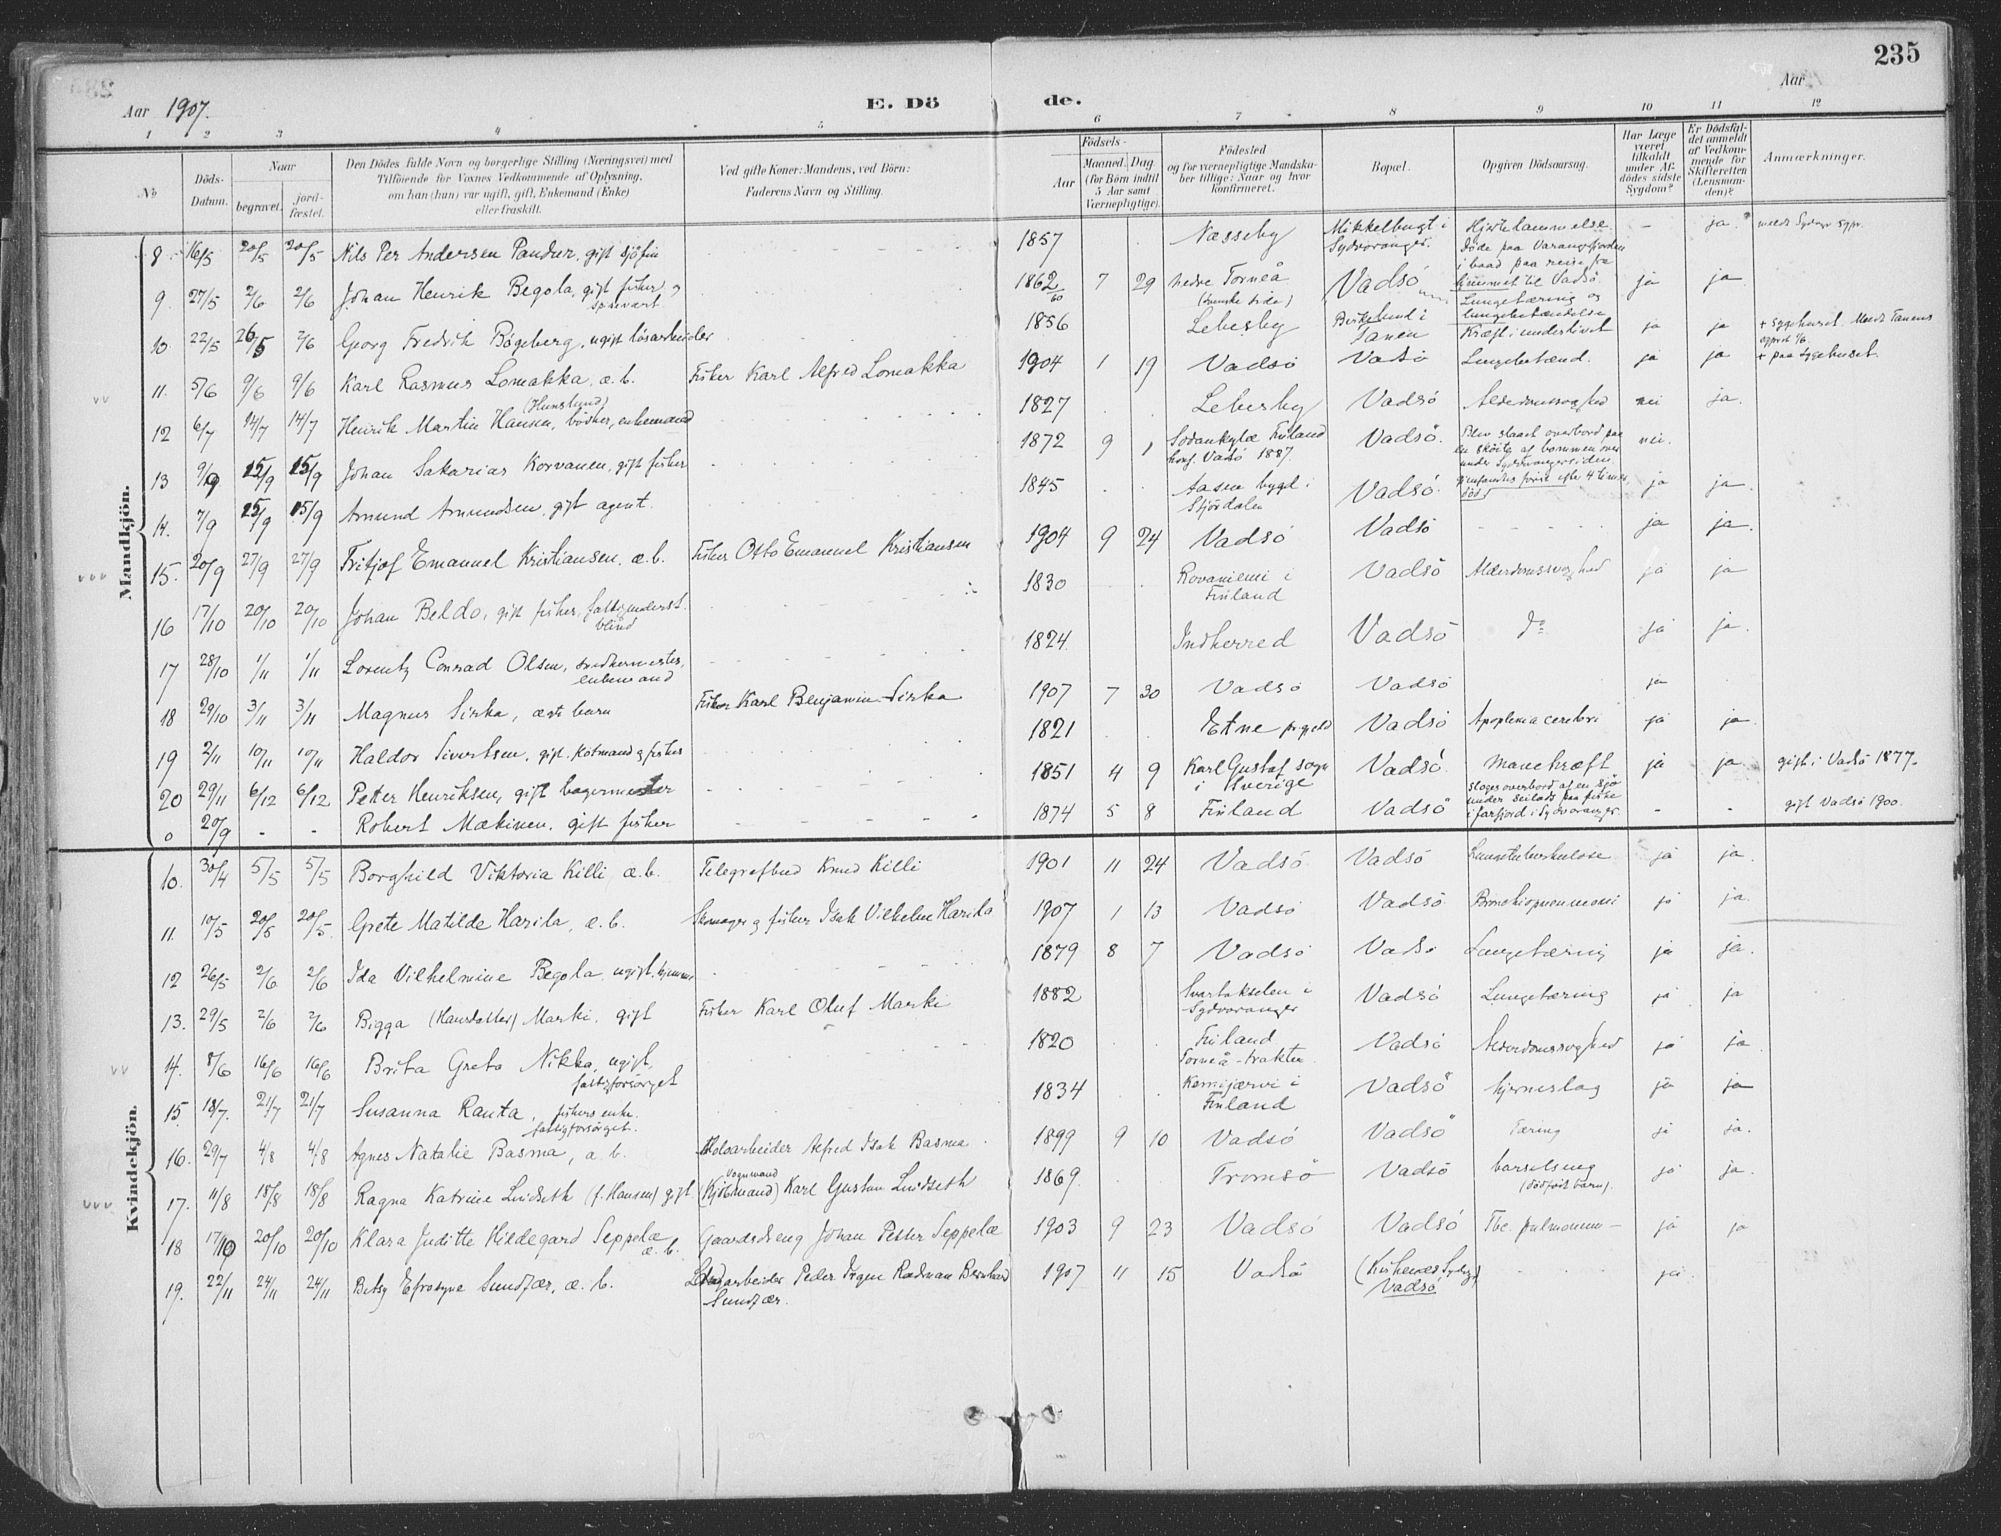 235
Aar 1907.
E. Döde.
Aar
1 2 3 4 5 6 7 8 9 10 11 12
No
Döds-Datum.
Naar begravet. jordfæstet.
Den Dödes fulde Navn og borgerlige Stilling (Næringsvei) med Tilföiende for Voxnes Vedkommende af Oplysning, om han (hun) var ugift, gift, Enkemand (Enke) eller fraskilt.
Ved gifte Koner: Mandens, ved Börn: Faderens Navn og Stilling.
Födsels- Aar Maaned. Dag (for Börn indtil 5 Aar samt Værnepligtige).
Födested og for værnepligtige Mandskaber tillige: Naar og hvor konfirmeret.
Bopæl.
Opgiven Dödsaarsag.
Har Læge været tilkaldt under Afdödes sidste Sygdom?
Er Dödsfaldet anmeldt af Vedkommende for Skifteretten (Lensmanden)?
Anmærkninger.
Mandkjön.
8 16/5 20/5 20/5 Nils Per Andersen Pandur, gift sjöfin 1857 Næsseby Mikkelbugt i Sydvaranger. Hjertelammelse. Döde paa Varangsfjorden i baad paa reise fra hjemmet til Vadsö. - ja
9. 27/5 2/6 2/6 Johan Henrik Begola, gift fisher 1862/60 7 29 Nedre Torneå (svenske side) Vadsö Lungetæring og lungebetændelse ja ja
10. 22/5 26/5 2/6 Georg Fredrik Bögeberg, ugift lösarbeider 1856 Lebesby Birkelund i Tanen Kræft i underlivet ja ja + Sygehuset. Meldt Tanens
11. 5/6 9/6 9/6 Karl Rasmus Lomakka, æ. b. Fisker Karl Alfred Lomakka 1904 1 19 Vadsö Vadsö Lungebetænd. ja ja + paa Sygehuset.
12 6/7 14/7 14/7 Henrik Martin Hansen (Hunslund), bödker, enkemand 1827 Lebesby Vadsö Alderdomssvaghed nei ja.
13 9/9 15/9 15/9 Johan Sakarias Korvanen, gift fisker 1872 9 1 Sodankylæ Finland konf. Vadsö 1887. Vadsö. Blev slaaet overbord paa en sköite af bommen nei.
14. 7/9 15/9 15/9 Amund Amundsen, gift agent. 1845 Aasen bygd i Stjördalen Vadsö. ja ja
15. 20/9 27/9 27/9 Fritjof Emanuel Kristiansen, æ. b. Fisker Otto Emanuel Kristiansen 1904 9 24 Vadsö Vadsö ja ja.
16 17/10 20/10 20/10 Johan Beldo, gift fisker, fattigunderst. blind 1830 Rovaniemi i Finland Vadsö Alderdomssvaghed ja ja
17 28/10 1/11 1/11 Lorentz Conrad Olsen, snedkermester, enkemand 1824 Indherred Vadsö do ja ja.
18 29/10 3/11 3/11 Magnus Sirka, ægte barn Fisker Karl Benjamin Sirka 1907 7 30 Vadsö Vadsö ja
19 2/11 10/11 10/11 Haldor Sivertsen, gift. Kotmand og fisker 1821 Etne prgjeld Vadsö Apoplexia cerebri ja ja
20 29/11 6/12 6/12 Petter Henriksen, gift bagermester 1851 4 9 Karl Gustaf sogn i Sverige Vadsö. Mavekræft ja ja gift i Vadsö 1877.
0 20/9 - - Robert Mækinen, gift fisker 1874 5 8 Finland Vadsö slages overbord af en sjö under seilads paa fiske i Jarfjord i Sydvaranger. - - gift Vadsö 1900.
Kvindekjön.
10. 30/4 5/5 5/5 Borghild Viktoria Killi æ. b. Telegrafbud Knud Killi 1901 11 24 Vadsö Vadsö Lungetuberkulose ja ja.
11. 10/5 20/5 20/5. Grete Matilde Harila, æ. b. Skomager og fisker Isak Vilhelm Harila 1907 1 13 Vadsö Vadsö Bronchiopneumoni ja ja.
12 26/5 2/6 2/6 Ida Vilhelmine Begola, ugift, hjemme 1879 8 7 Vadsö Vadsö Lungetæring ja ja.
13. 29/5 2/6 2/6 Bigga (Hansdatter) Marki, gift Fisker Karl Oluf Marki 1882 Svartakselen i Sydvaranger Vadsö Lungetæring ja ja
14. 8/6 16/6 16/6 Brita Greta Nikka, ugift, fattigforsörget 1820 Finland Torneå-trakten Vadsö Alderdomssvaghed ja ja
15. 18/7. 21/7 21/7 Susanna Ranta, fiskers enke. fattigforsörget. 1834 Kemijærvi i Finland Vadsö hjerneslag ja ja
16. 29/7 4/8 4/8 Agnes Natalie Basma, æ. b. Alfred Isak Basma. 1899 9 10 Vadsö Vadsö Tæring ja ja.
17. 11/8 18/8 18/8 Ragna Katrine Lindseth (f. Hansen) gift Vognmand (Kjöbmand) Karl Gustav Lindseth 1869. Tromsö Vadsö barselseng (dödfödt barn). ja ja.
18 17/10 20/10 20/10 Klara Juditte Hildegard Seppelæ æ. b. Gaardsdreng Johan Petter Seppelæ 1903 9 23 Vadsö Vadsö Tbc. pulmonum - ja ja
19. 22/11 24/11 24/11 Betsy Efrosyne Sundfær, æ. b. Peder Irgen Rodman Bernhard Sundfær. 1907 11 15 Vadsö (Kirkenes Sydv.) Vadsö ja.